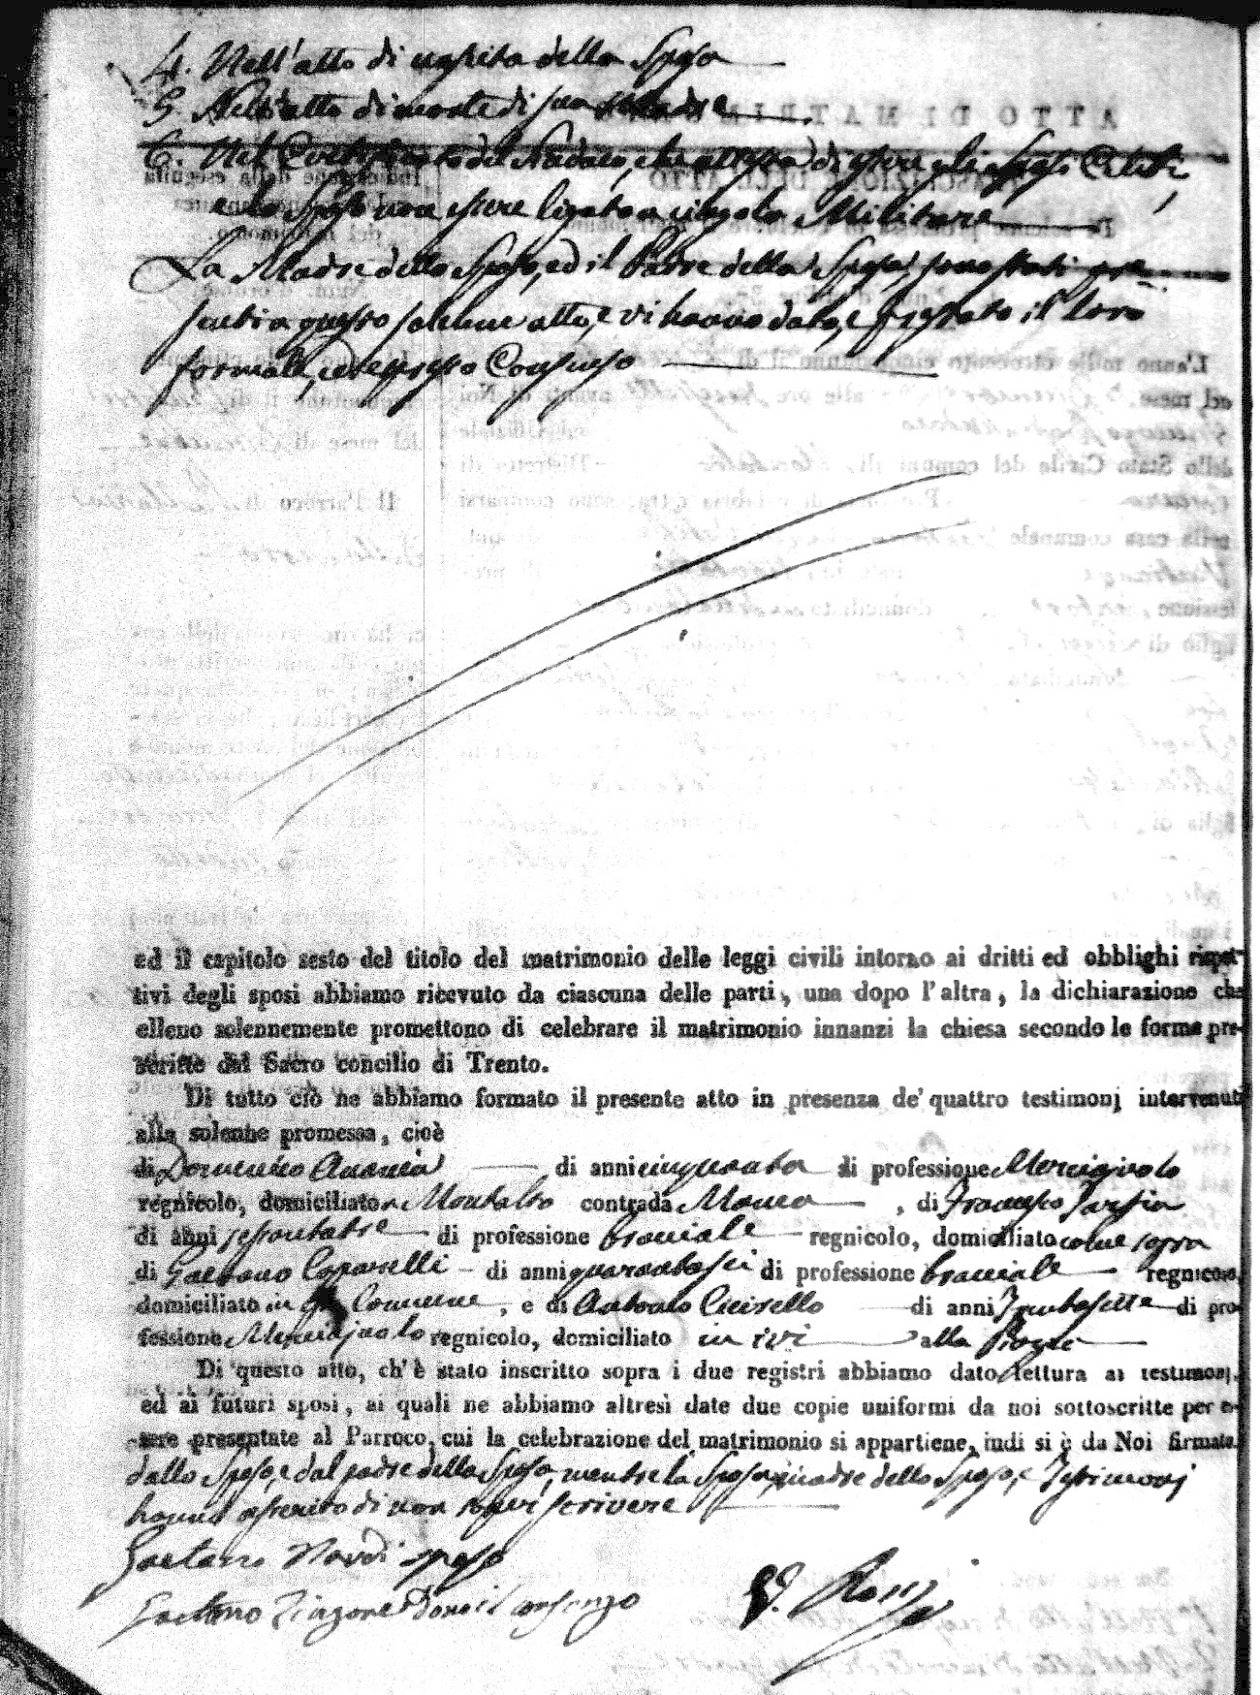 4. Nell'atto di nascita della Sposa
5. Nell'atto di morte di sua Madre
6. Nel Certificato del Sindaco, che attesta di essere gli Sposi Celibi,
e lo Sposo non essere ligato a cingolo Militare
La Madre dello Sposo, ed il Padre della Sposa, sono stati pre
senti a questo solenne atto, e vi hanno dato, e prestato il loro
formale, ed espresso Consenso
ed il capitolo sesto del titolo del matrimonio delle leggi civili intorno ai dritti ed obblighi rispet-
tivi degli sposi abbiamo ricevuto da ciascuna delle parti, una dopo l'altra, la dichiarazione che
elleno solennemente promettono di celebrare il matrimonio innanzi la chiesa secondo le forme pre-
scritte dal Sacro concilio di Trento.
Di tutto ciò ne abbiamo formato il presente atto in presenza de' quattro testimonj intervenuti
alla solenne promessa, cioè
di Domenico di anni cinquanta di professione
regnicolo, domiciliato a Montalto contrada , di Francesco
di anni sessantatre di professione bracciale regnicolo, domiciliato come sopra
di Gaetano di anni quarantasei di professione bracciale regnicolo,
domiciliato in Comune, e di Antonio di anni trentasette di pro-
fessione regnicolo, domiciliato in ivi alla
Di questo atto, ch'è stato inscritto sopra i due registri abbiamo dato lettura ai testimonj,
ed ai futuri sposi, ai quali ne abbiamo altresì date due copie uniformi da noi sottoscritte per es-
sere presentate al Parroco, cui la celebrazione del matrimonio si appartiene, indi si è da Noi firmato
dallo Sposo, e dal padre della Sposa, mentre la Sposa, madre dello Sposo, e Testimonj
hanno asserito di non sapervi scrivere
Gaetano Nardi sposo
Gaetano dono il consenzo